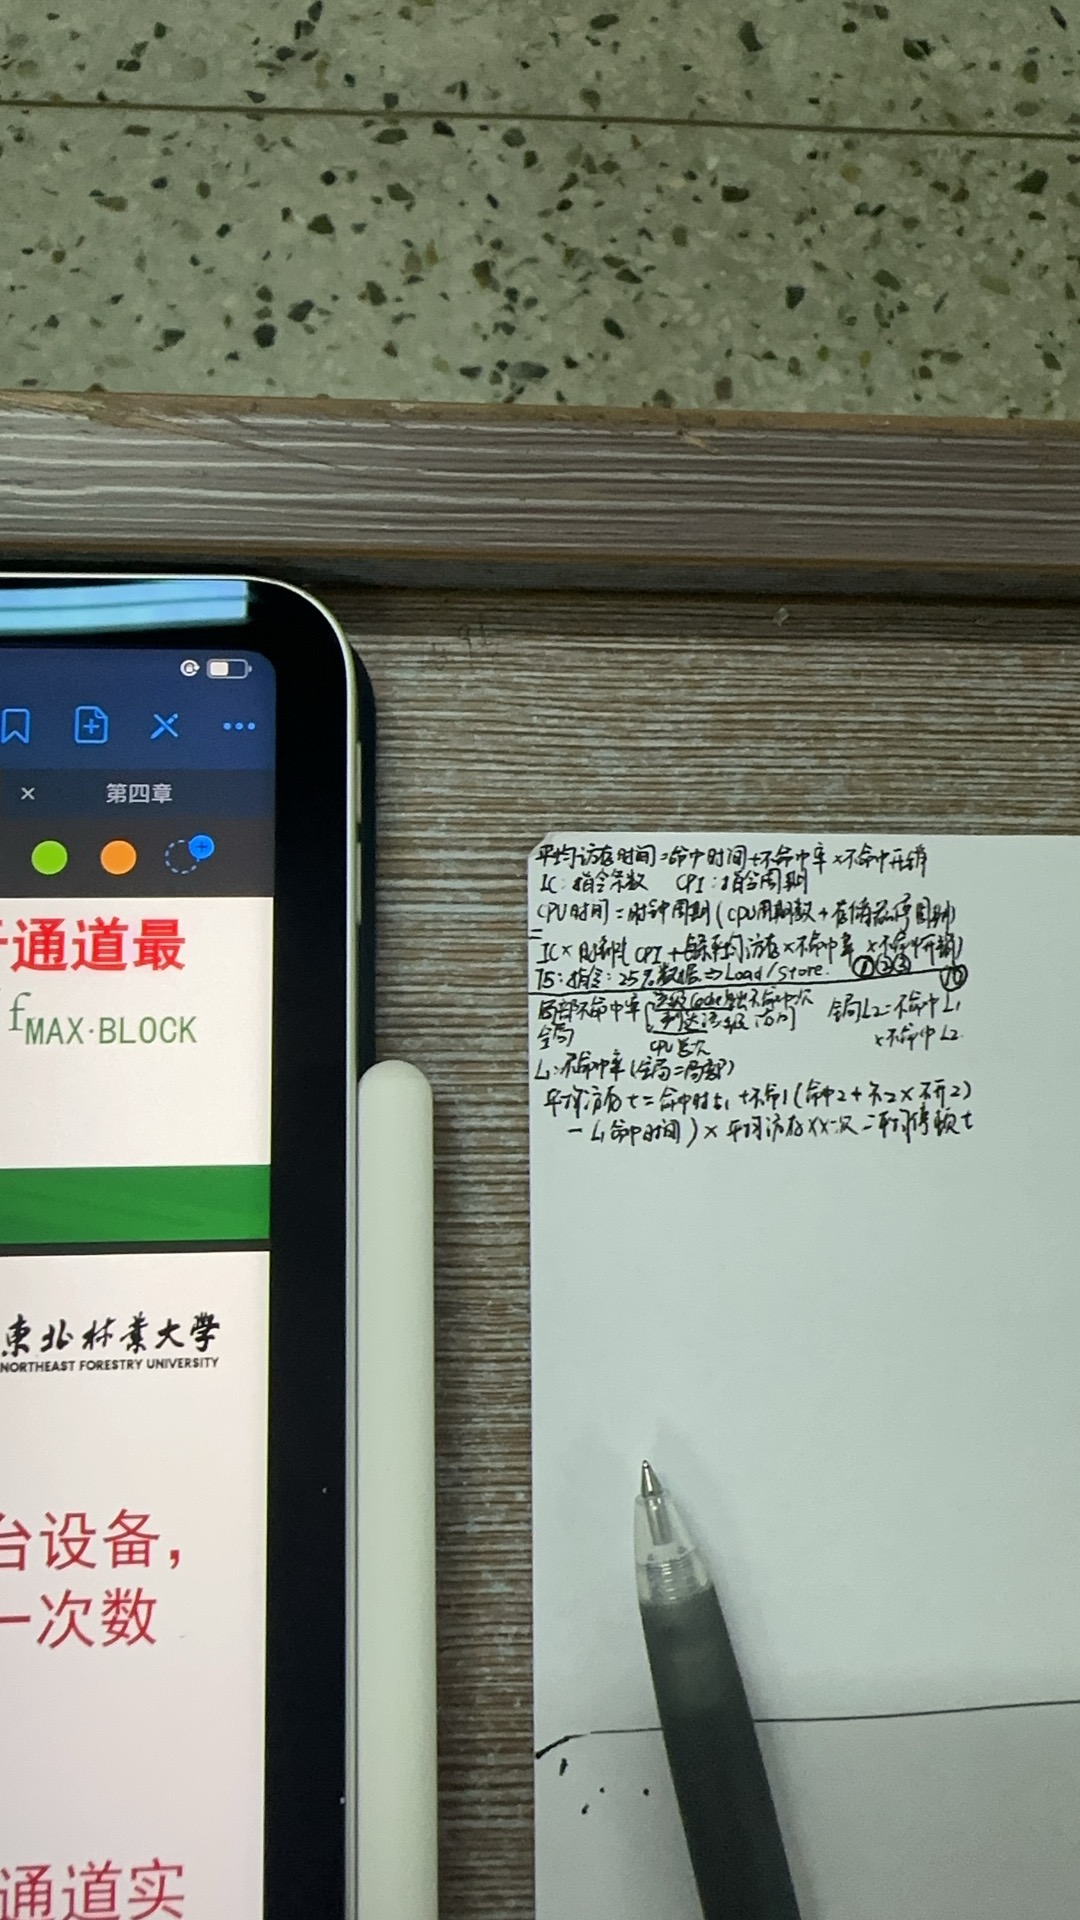 第四章
通道最
fMAX·BLOCK
東北林業大学
NORTHEAST FORESTRY UNIVERSITY
台设备，
一次数
通道实
平均访存时间=命中时间+不命中率×不命中开销
IC:指令条数 CPI:指令周期
CPU时间=时钟周期(CPU周期数+存储器停周期)
=
IC×时钟[CPI+每条平均访存×不命中率×不命中开销]
75:指令:25%数据⇒Load/Store. ①②③
局部不命中率 该级Cache 不命中次 全局L2=不命中L1
到达该级访问 ×不命中L2
全局 CPU总次
L1:不命中率(全局=局部)
平均访存t=命中时t1+不命1(命中2+不2×不开2)
-L1命中时间)×平均访存××次=平均停顿t